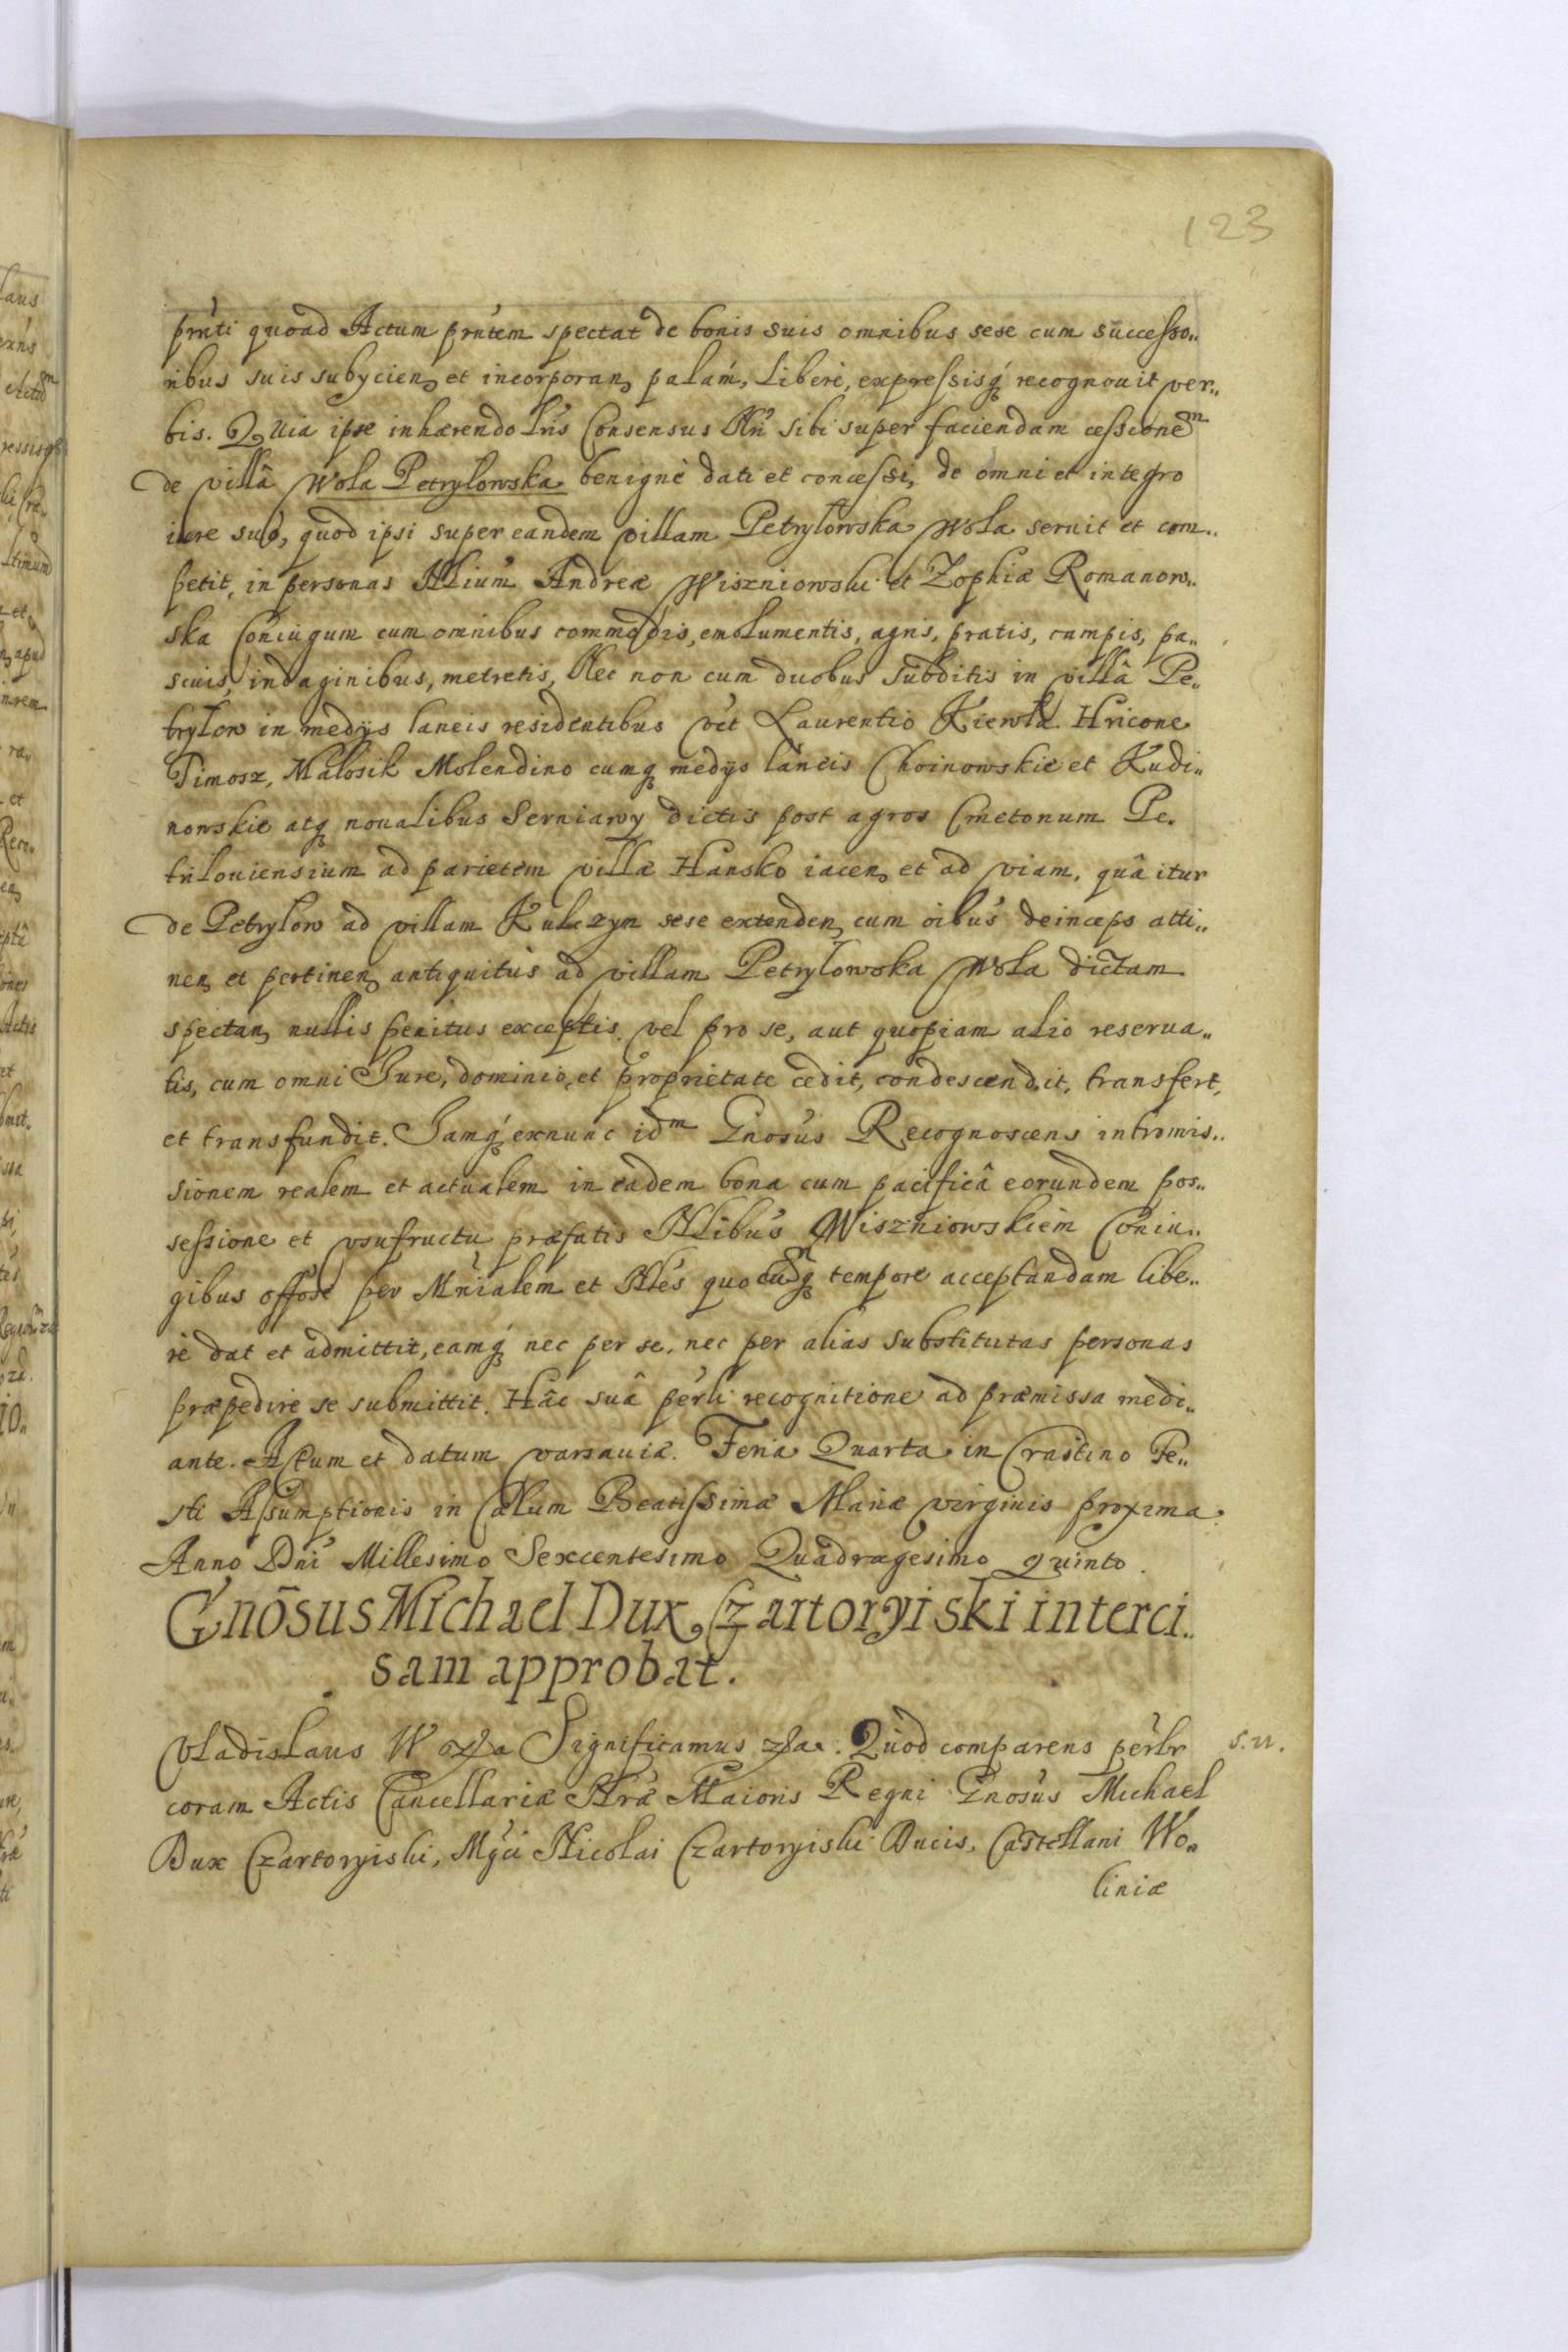 123
prńti quoad Actum prńtem spectat de bonis suis omnibus sese cum successo„
ribus suis subycień et incorporań palam, Liberè, expressisq́ recognouit ver„
bis. Quia ipse inhærendo Lrís Consensus Nrí sibi super faciendam cessioneͫ
de villâ Wola Petrylowska benignè dati et concessi, de omni et integro
iure suo, quod ipsi super eandem villam Petrylowska Wola seruit et com„
petit, in personas Nlium Andreæ Wiszniowski et Zophiæ Romanow„
ska Coniugum cum omnibus commodis, emolumentis, agris, pratis, campis, pa„
scuis, indaginibus, metretis, Nec non cum duobus subditis in villâ Pe„
trylow in medijs laneis residentibus vet Laurentio Kiewla Hricone
Timosz, Malosik Molendino cumq́ medys laneis Choinowskie et Kudi„
nowskie atq́ noualibus Serniawy dictis post agros Cmetonum Pe„
triloviensium ad parietem villæ Hansko iaceń et ad viam, quâ itur
de Petrylow ad villam Kulczyn sese extendeń cum oibus deinceps atti„
neń et pertineń antiquitùs ad villam Petrylowska Wola dictam
spectań nullis penitus exceptis, vel pro se, aut quopiam alio reserua„
tis, cum omni Iure, dominio, et proprietate cedit, condescendit, transfert,
et transfundit. Iamq́ exnunc idͫ Gnosus Recognoscens intromis„
sionem realem et actualem in eadem bona cum pacificâ eorundem pos„
sessione et vsufructu præfatis Nlibus Wiszniowskiem Coniu„
gibus offose per Mńialem et Nles quocunq́ tempore acceptandam libe„
rè dat et admittit, eamq́ nec per se, nec per alias substitutas personas
præpedire se submittit. Hâc suâ perli recognitione ad præmissa medi„
ante. Actum et datum varsauiæ. Feria Quarta in Crastino Fe„
sti Assumptionis in Cælum Beatissimæ Mariæ virginis proxima
Anno Dni Millesimo Sexcentesimo Quadragesimo quinto.
Gnōsus Michael Dux Czartoryiski interci„
sam approbat.
Vladislaus IV &a Significamus &a. Quod comparens perlr
s.u.
coram Actis Cancellariæ Nræ Maioris Regni Gnosus Michael
Dux Czartoryiski, Mgci Nicolai Czartoryiski Ducis, Castellani Wo„
liniæ